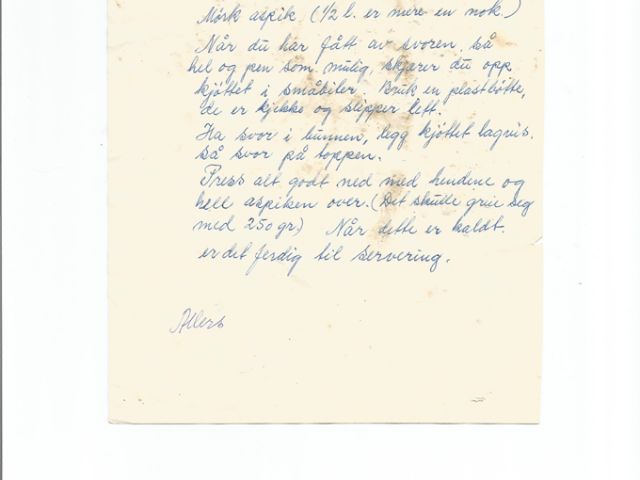 Mørk aspik (1/2 l. er mere en nok.)
Når du har fått av svoren, så
hel og pen som mulig, skjærer du opp
kjøttet i småbiler. Bruk en plastbøtte,
de er kjekke og slipper lett.
Ha svor i bunnen, legg kjøttet lagvis.
så svor på toppen.
Press alt godt ned med hendene og
hell aspiken over. (Det skulle greie seg
med 250 gr.) Når dette er kaldt.
er det ferdig til servering.
Allers